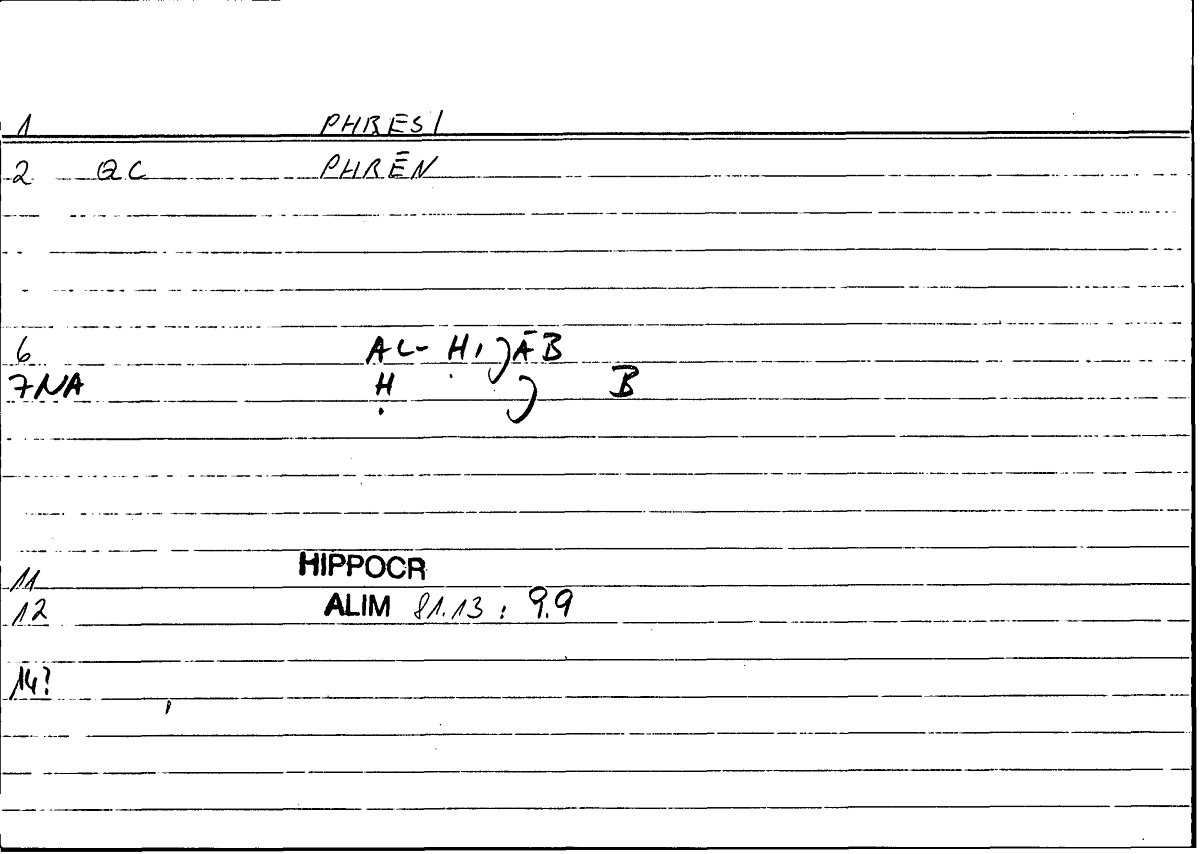 1 PHRESI
2 QC PHRĒN
6 AL-ḤIJĀB
7NA Ḥ J B
11 HIPPOCR
12 ALIM 81.13 : 9.9
14?